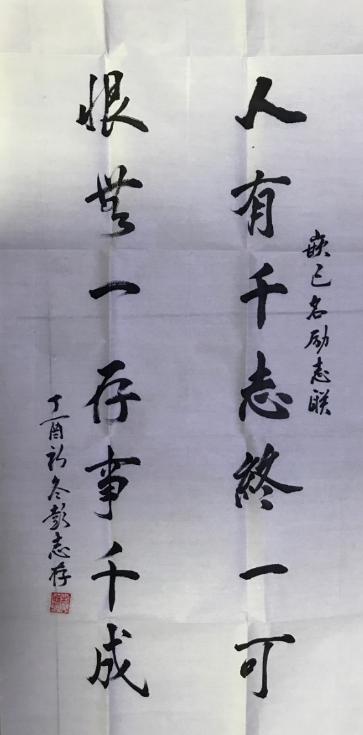 嵌己名励志联
人有千志終一可
恨無一存事千成
丁酉初冬彭志存